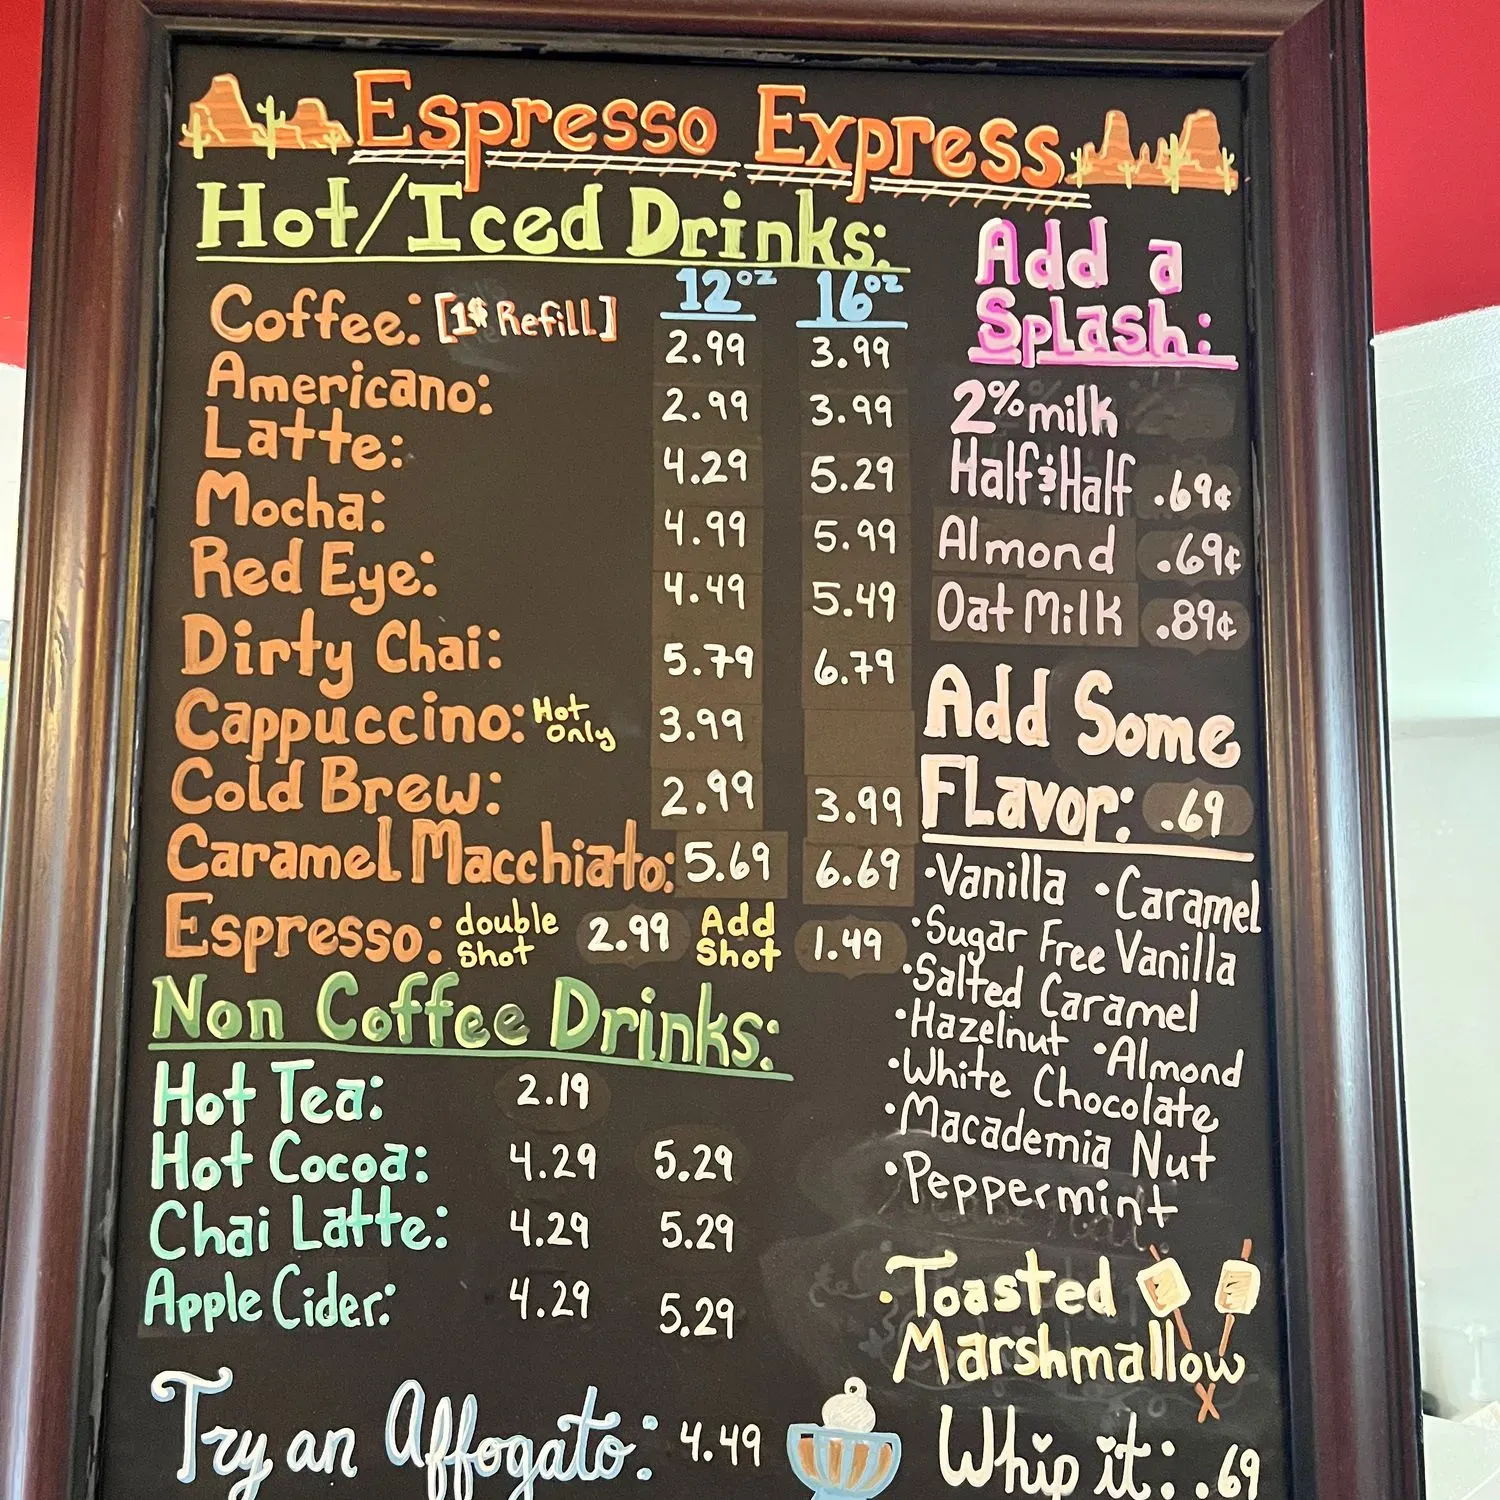 Espresso Express
Hot/Iced Drinks:
12oz 16oz
Coffee: [1$ Refill] 2.99 3.99
Americano: 2.99 3.99
Latte: 4.29 5.29
Mocha: 4.99 5.99
Red Eye: 4.49 5.49
Dirty Chai: 5.79 6.79
Cappuccino: Hot Only 3.99
Cold Brew: 2.99 3.99
Caramel Macchiato: 5.69 6.69
Espresso: double Shot 2.99 Add Shot 1.49
Non Coffee Drinks:
Hot Tea: 2.19
Hot Cocoa: 4.29 5.29
Chai Latte: 4.29 5.29
Apple Cider: 4.29 5.29
Try an Affogato: 4.49
Add a
Splash:
2% milk
Half & Half .69¢
Almond .69¢
Oat Milk .89¢
Add Some
FLavor: .69
•Vanilla •Caramel
•Sugar Free Vanilla
•Salted Caramel
•Hazelnut •Almond
•White Chocolate
•Macademia Nut
•Peppermint
•Toasted
Marshmallow
Whip it: .69